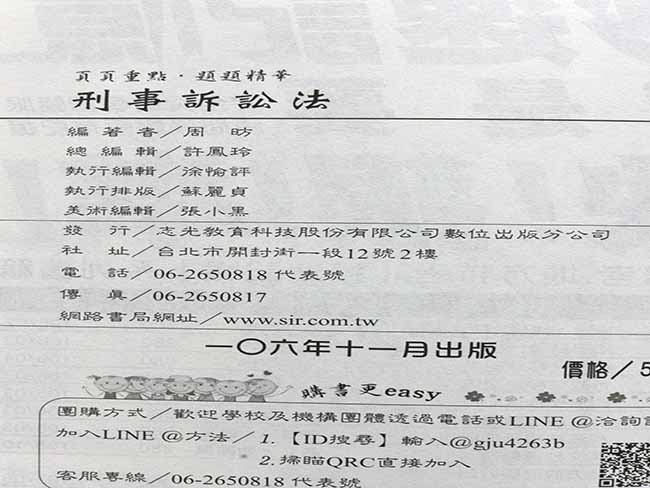 頁頁重點．題題精華
刑事訴訟法
編著者／周昉
總編輯／許鳳玲
執行編輯／徐愉評
執行排版／蘇麗貞
美術編輯／張小黑
發行／志光教育科技股份有限公司數位出版分公司
社址／台北市開封街一段12號2樓
電話／06-2650818 代表號
傳真／06-2650817
網路書局網址／www.sir.com.tw
一〇六年十一月出版
價格／5
購書更easy
團購方式／歡迎學校及機構團體透過電話或LINE @洽詢
加入LINE @方法／1.【ID搜尋】輸入@gju4263b
2.掃瞄QRC直接加入
客服專線／06-2650818 代表號